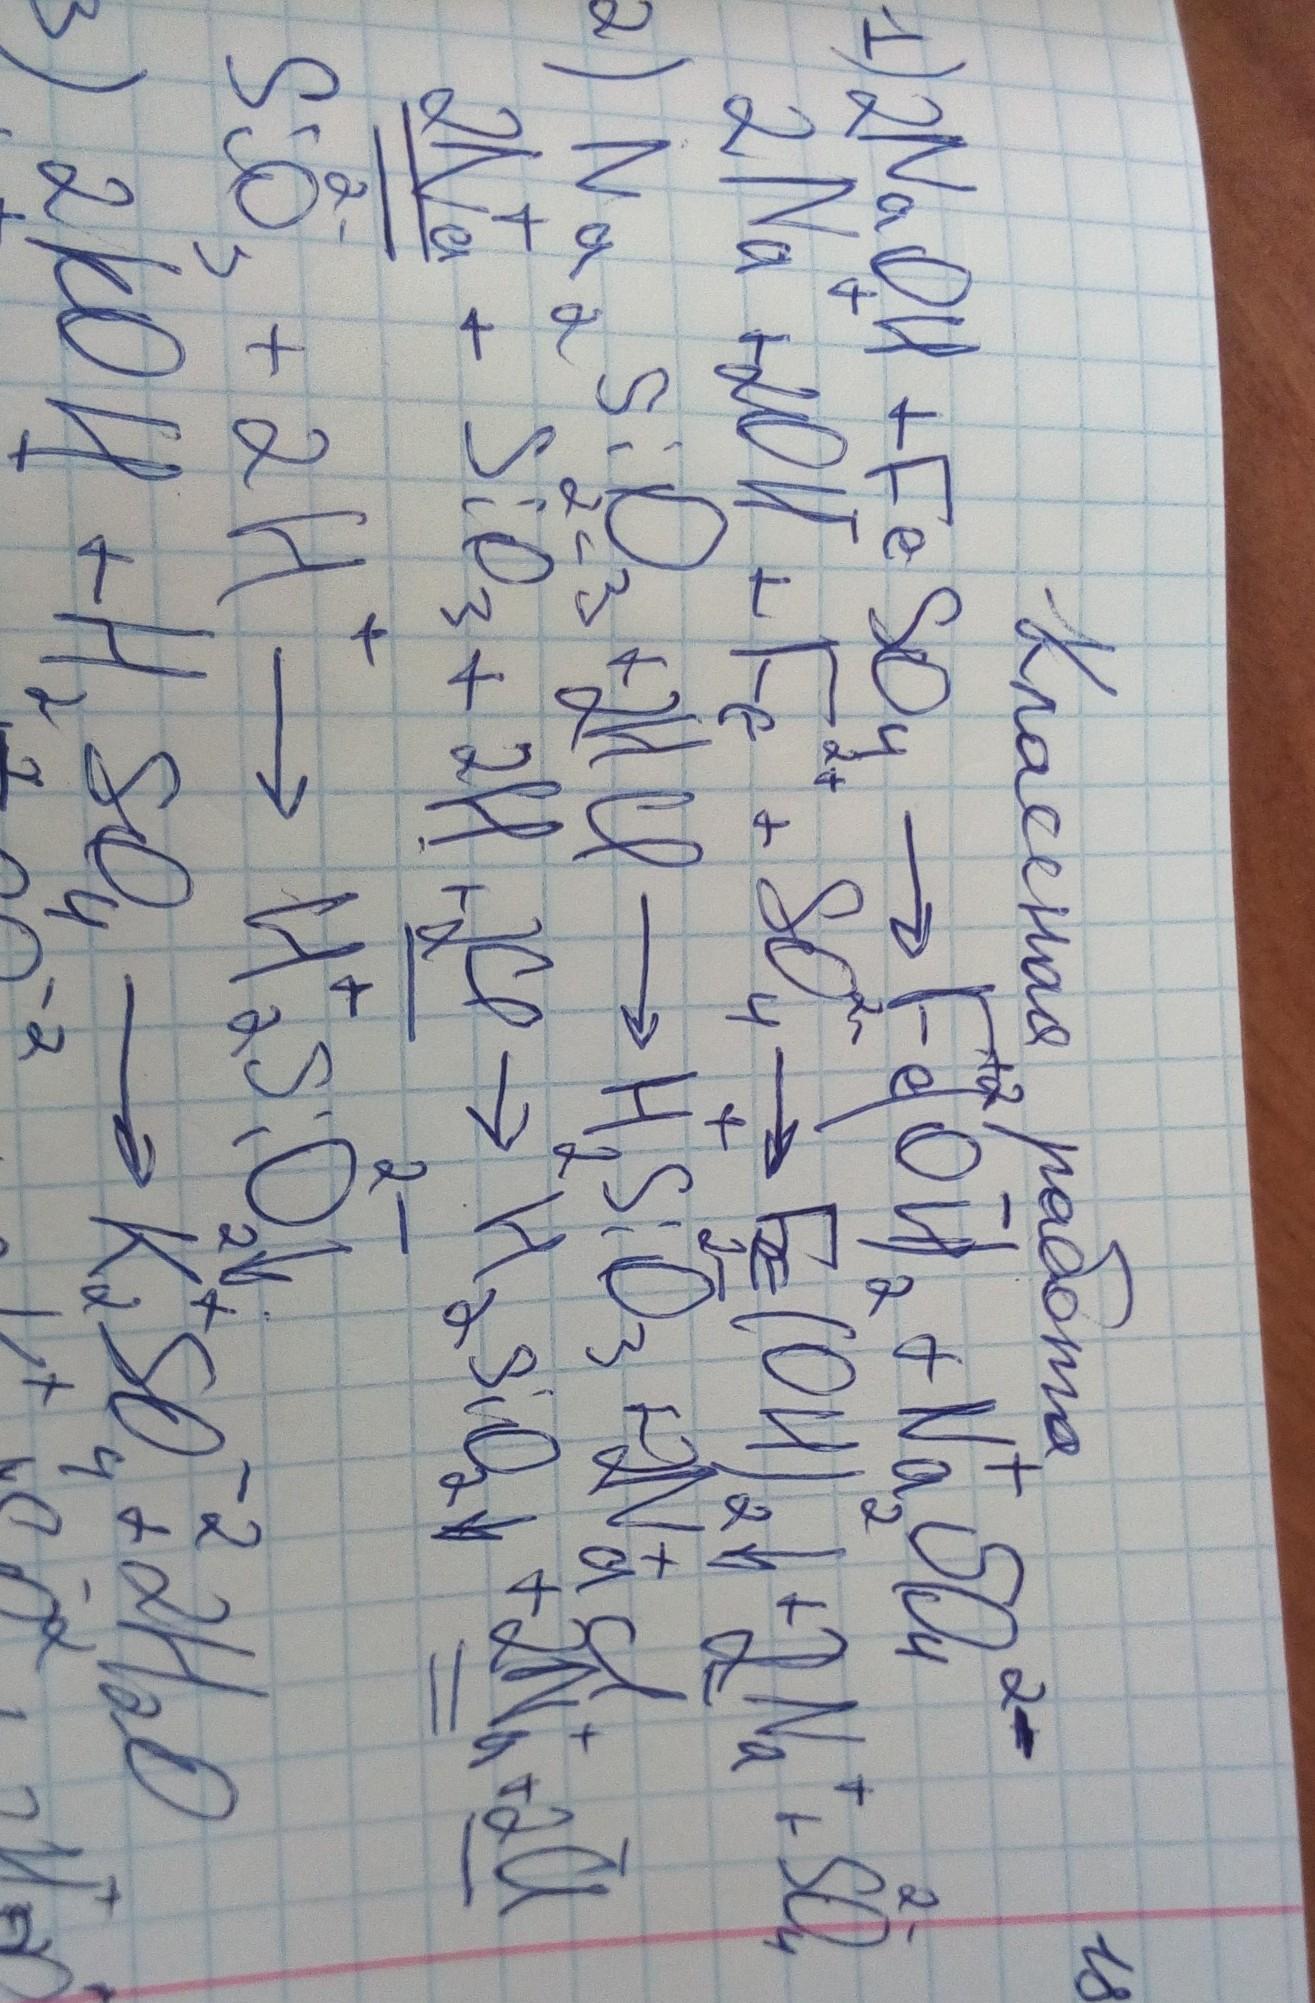 18
Классная работа
1) 2NaOH + FeSO₄ → Fe⁺²(OH⁻)₂ + Na₂⁺SO₄²⁻
2Na⁺ + 2OH⁻ + Fe²⁺ + SO₄²⁻ → Fe(OH)₂↓ + 2Na⁺ + SO₄²⁻
2) Na₂SiO₃ + 2HCl → H₂⁺SiO₃²⁻ + 2Na⁺Cl
2Na⁺ + SiO₃²⁻ + 2H + 2Cl → H₂SiO₂↓ + 2Na⁺ + 2Cl⁻
SiO₃²⁻ + 2H⁺ → H₂⁺SiO₂²⁻↓
3) 2KOH + H₂SO₄ → K₂⁺SO₄⁻² + 2H₂O